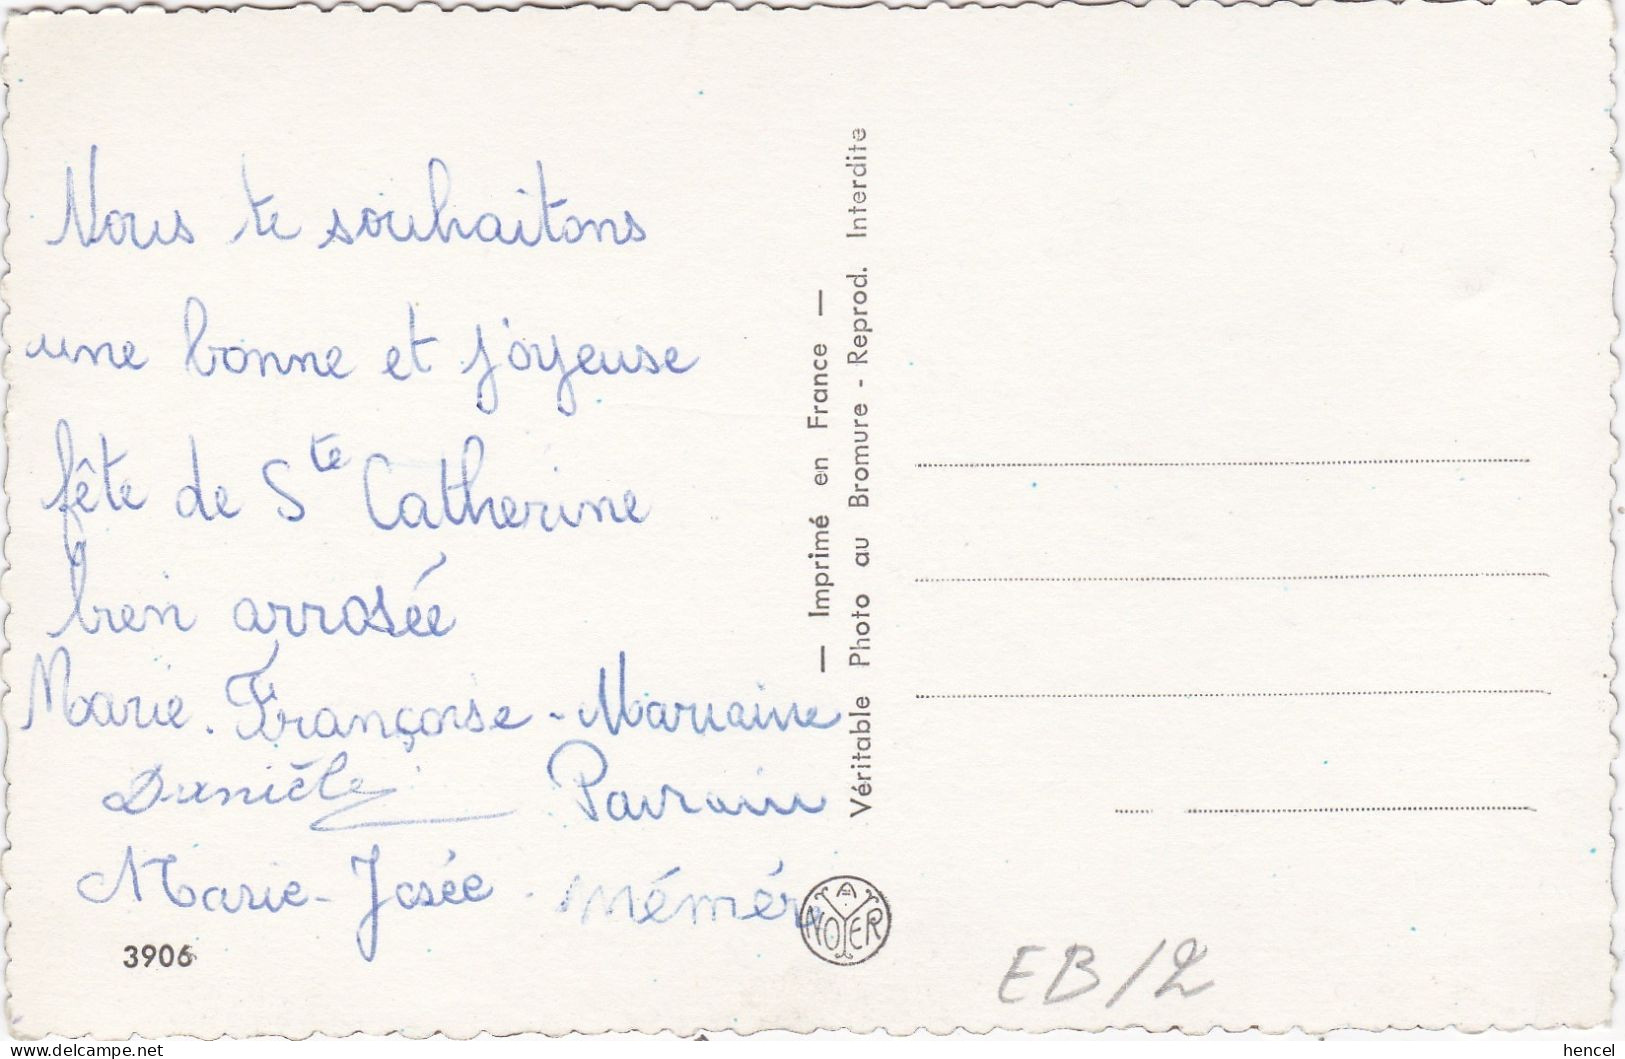 Nous te souhaitons
une bonne et joyeuse
fête de Ste Catherine
bien arrosée
Marie-Françoise - Marraine
Danièle Parrain
Marie-Josée - Mémère
3906
— Imprimé en France —
Véritable Photo au Bromure - Reprod. Interdite
A NOYER
EB/2
www.delcampe.net
hencel